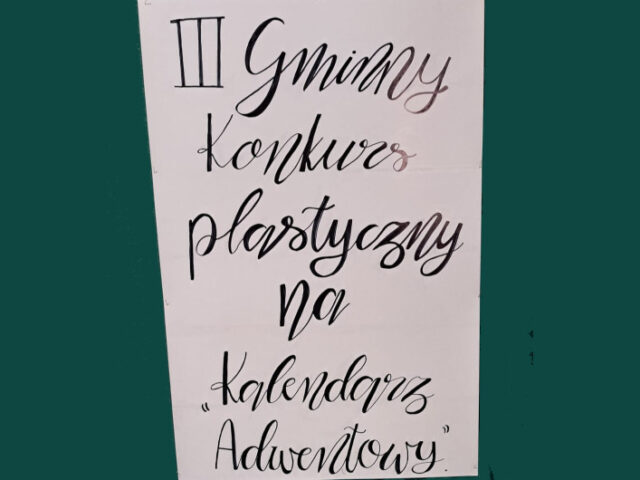 III Gminny
Konkurs
plastyczny
na
„Kalendarz
Adwentowy”.